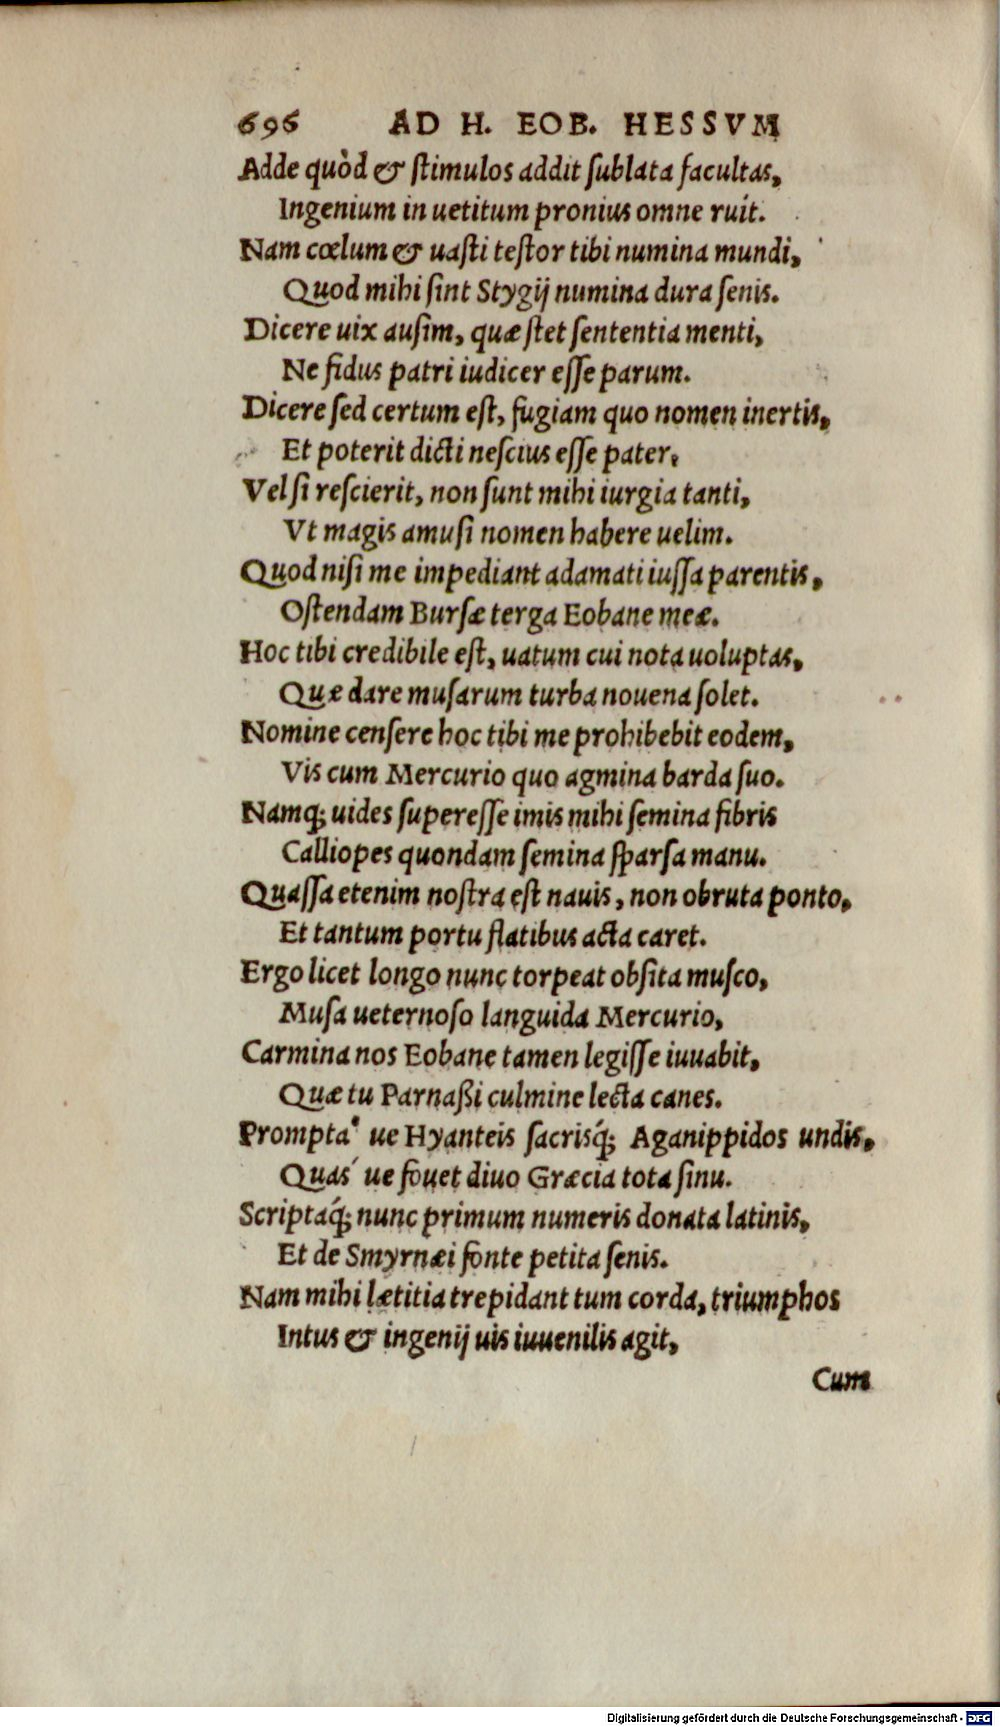 696 AD H. EOB. HESSVM
Adde quòd & ſtimulos addit ſublata facultas,
Ingenium in uetitum pronius omne ruit.
Nam cœlum & uaſti teſtor tibi numina mundi,
Quod mihi ſint Stygij numina dura ſenis.
Dicere uix auſim, quæ ſtet ſententia menti,
Ne fidus patri iudicer eſſe parum.
Dicere ſed certum eſt, fugiam quo nomen inertis,
Et poterit dicti neſcius eſſe pater,
Vel ſi reſcierit, non ſunt mihi iurgia tanti,
Vt magis amuſi nomen habere uelim.
Quod niſi me impediant adamati iuſſa parentis,
Oſtendam Burſæ terga Eobane meæ.
Hoc tibi credibile eſt, uatum cui nota uoluptas,
Quæ dare muſarum turba nouena ſolet.
Nomine cenſere hoc tibi me prohibebit eodem,
Vis cum Mercurio quo agmina barda ſuo.
Namq; uides ſupereſſe imis mihi ſemina fibris
Calliopes quondam ſemina ſparſa manu.
Quaſſa etenim noſtra eſt nauis, non obruta ponto,
Et tantum portu flatibus acta caret.
Ergo licet longo nunc torpeat obſita muſco,
Muſa ueternoſo languida Mercurio,
Carmina nos Eobane tamen legiſſe iuuabit,
Quæ tu Parnaßi culmine lecta canes.
Prompta' ue Hyanteis ſacrisq́; Aganippidos undis,
Quas' ue fouet diuo Græcia tota ſinu.
Scriptaq́; nunc primum numeris donata latinis,
Et de Smyrnæi fonte petita ſenis.
Nam mihi lætitia trepidant tum corda, triumphos
Intus & ingenij uis iuuenilis agit,
Cum
Digitalisierung gefördert durch die Deutsche Forschungsgemeinschaft - DFG